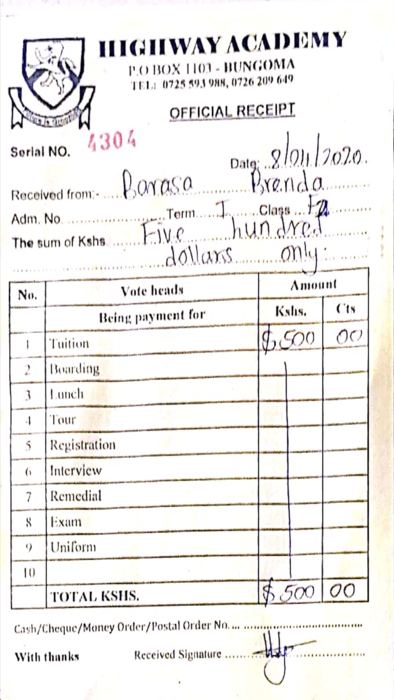 HIGHWAY ACADEMY
P.O BOX 1101 - BUNGOMA
TEL: 0725 593 988, 0726 209 649
OFFICIAL RECEIPT
Serial NO. 4304
Date: 8/01/2020.
Received from:- Barasa Brenda
Adm. No. Term I Class F2
The sum of Kshs Five hundred
dollars only:
No. Vote heads Amount
Being payment for Kshs. Cts
1 Tuition $500 00
2 Boarding
3 Lunch
4 Tour
5 Registration
6 Interview
7 Remedial
8 Exam
9 Uniform
10
TOTAL KSHS. $500 00
Cash/Cheque/Money Order/Postal Order No.
With thanks Received Signature